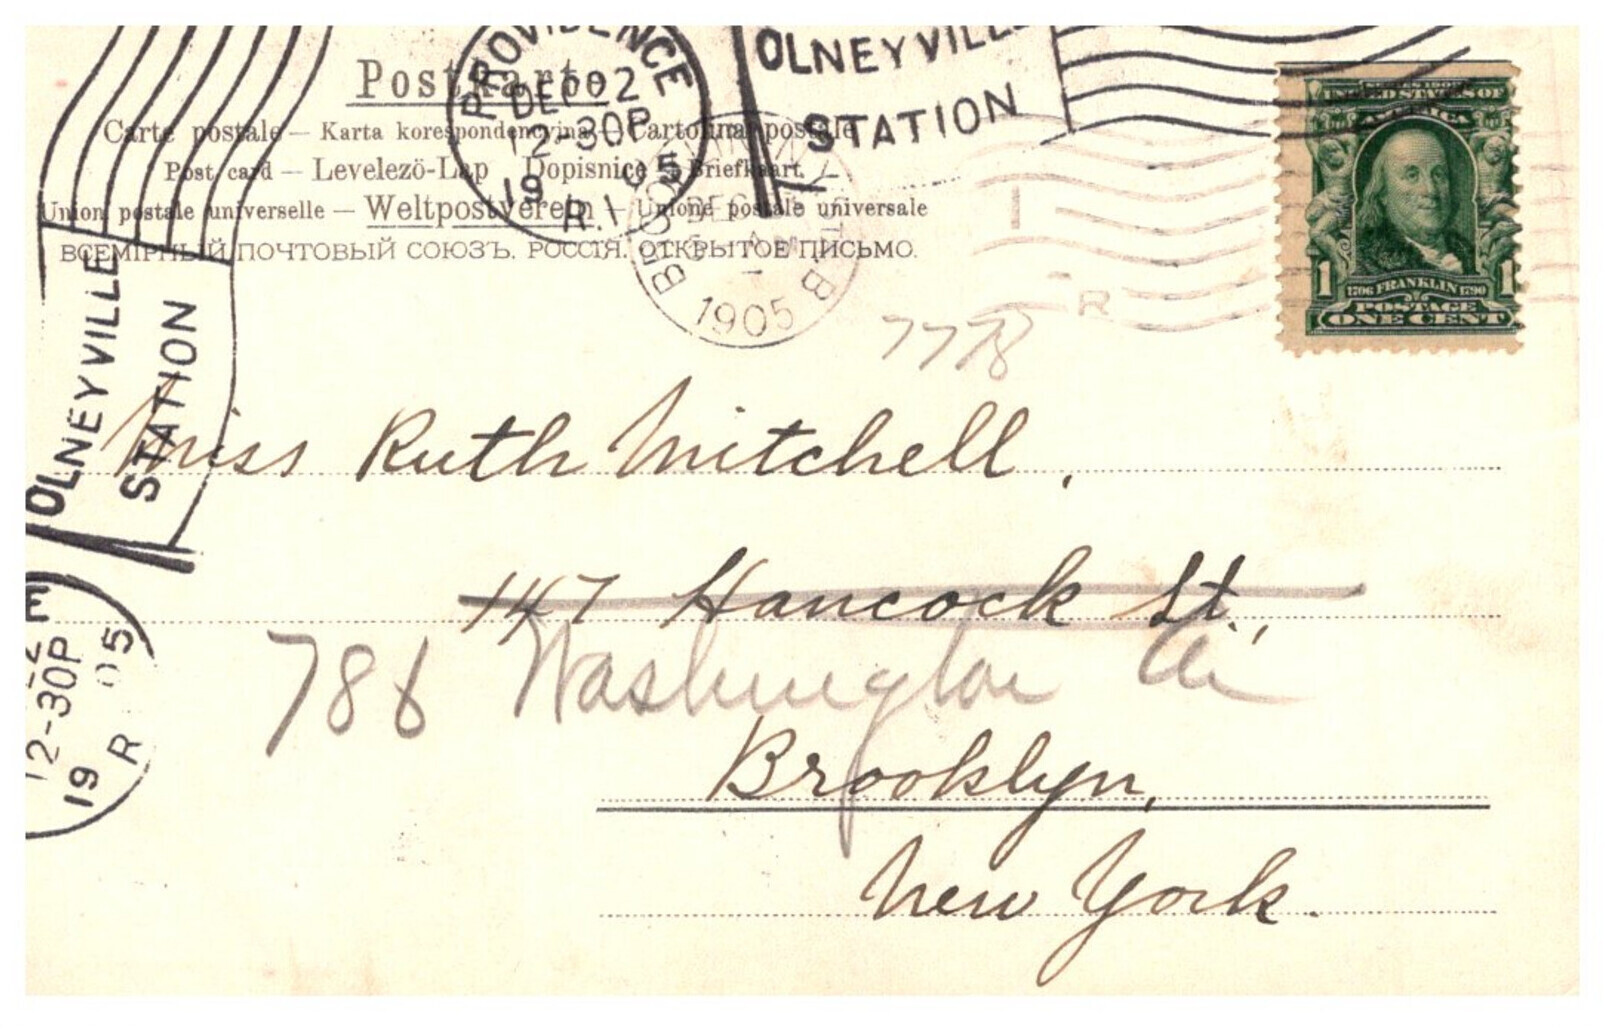 Postkarte
Carte postale — Karta korespondencyjna — Cartolina postale
Post card — Levelező-Lap Dopisnice — Briefkaart.
Union postale universelle — Weltpostverein — Unione postale universale
ВСЕМІРНЫЙ ПОЧТОВЫЙ СОЮЗЪ. РОССІЯ. ОТКРЫТОЕ ПИСЬМО.
PROVIDENCE
12-30P
1905
R.I
OLNEYVILLE
STATION
1905
B
R
SERIES 1902
UNITED STATES OF
AMERICA
1 1706 FRANKLIN 1790 1
POSTAGE
ONE CENT
7778
OLNEYVILLE
STATION
Miss Ruth Mitchell,
147 Hancock St.,
786 Washington Av
Brooklyn,
New York.
E
12-30P
19 05
R